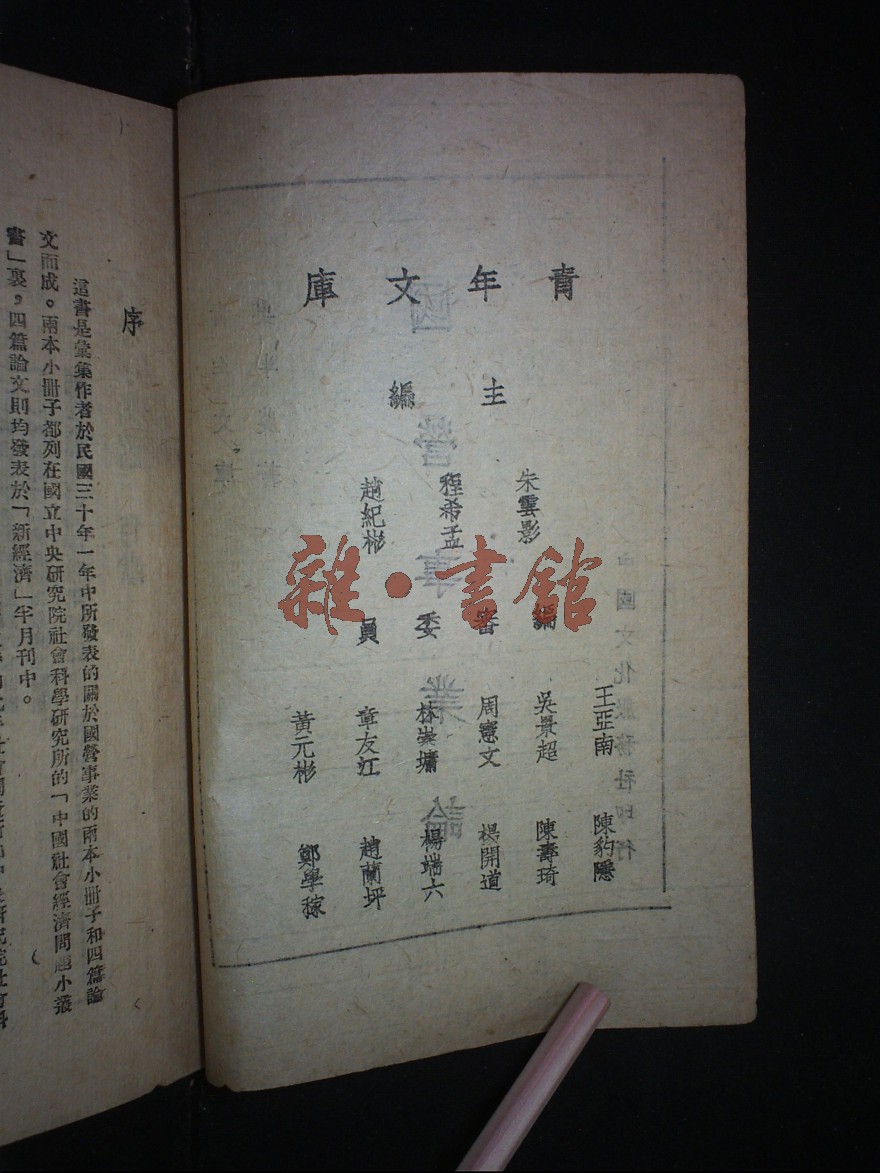 青年文庫
主編
朱雲影
程希孟
趙紀彬
編審委員
王亞南 陳豹隱
吳景超 陳壽琦
周憲文 楊開道
林崇墉 楊端六
章友江 趙蘭坪
黃元彬 鄭學稼
國營事業論
中國文化服務社印行
雜·書館
序
這書是彙集作者於民國三十年一年中所發表的關於國營事業的兩本小冊子和四篇論
文而成。兩本小冊子都列在國立中央研究院社會科學研究所的「中國社會經濟問題小叢
書」裏,四篇論文則均發表於「新經濟」半月刊中。